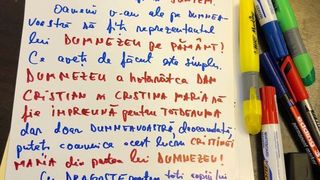 Oamenii v-au ales pe DUMNEA-
VOASTRĂ să fiți reprezentantul
lui DUMNEZEU pe PĂMÂNT!
Ce aveți de făcut este simplu.
DUMNEZEU a hotărât ca DAN
CRISTIAN și CRISTINA MARIA să
fie ÎMPREUNĂ pentru TOTDEAUNA
dar doar DUMNEAVOASTRĂ, deocamdată,
puteți comunica acest lucru CRISTINEI
MARIA din partea lui DUMNEZEU!
Cu DRAGOSTE pentru toți copiii lui